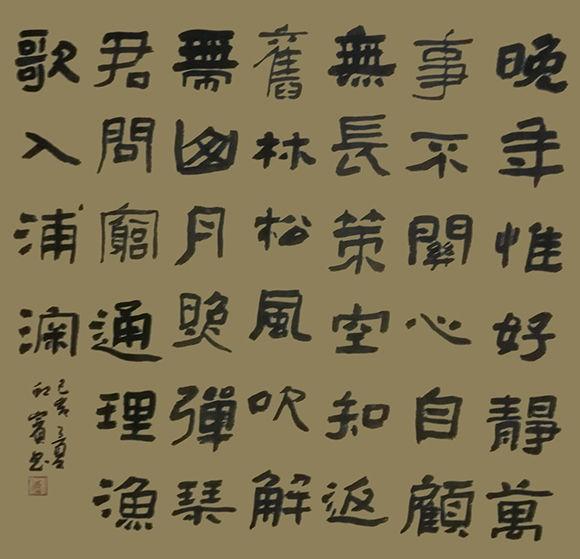 晚年惟好靜萬
事不關心自顧
無長策空知返
舊林松風吹解
帶山月照彈琴
君問窮通理漁
歌入浦深
己亥之夏